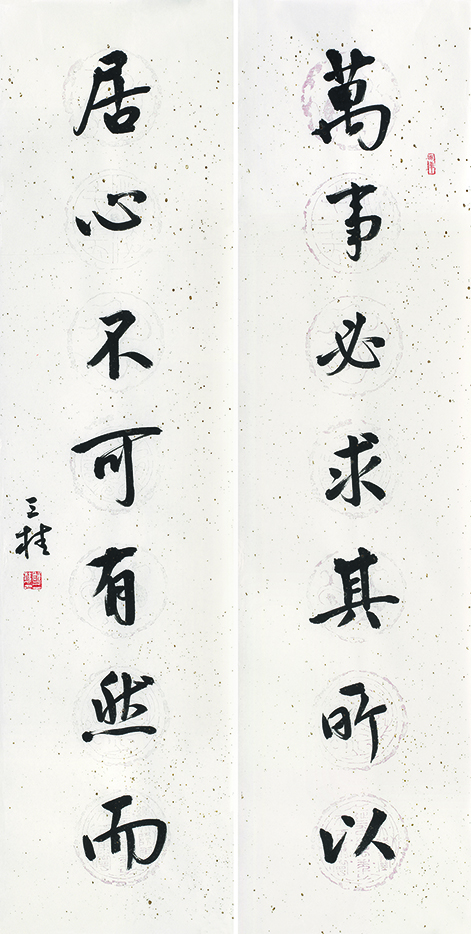 萬事必求其所以
居心不可有然而
三桂